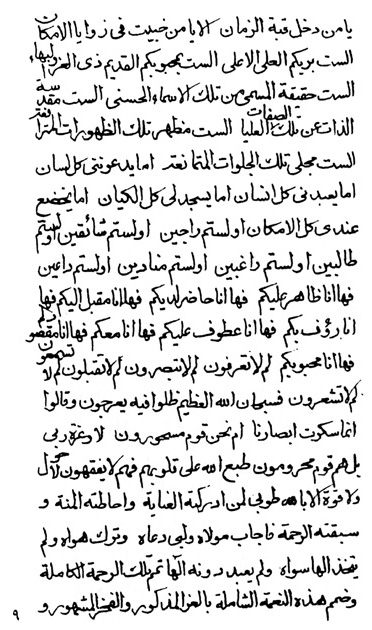 يا من دخل قبة الزمان الا يا من خبيت فى زوايا الامكان
الست بربكم العلى الاعلى الست بمحبوبكم القديم ذى العز والبهاء
الست حقيقة المسمى من تلك الاسماء الحسنى الست مقدسة
الذات عن تلك الصفات العليا الست مظهر تلك الظهورات
الست مجلى تلك الجلوات اما يدعوننى كل لسان
اما يعبدنى كل انسان اما يسجد لى كل الكيان اما يخضع
عندى كل الامكان اولستم راجين اولستم شائقين اولستم
طالبين اولستم راغبين اولستم منادين اولستم داعين
فها انا ظاهر عليكم فها انا حاضر لديكم فها انا مقبل اليكم فها
انا رؤف بكم فها انا عطوف عليكم فها انا معكم فها انا مقصودكم
فها انا محبوبكم لم لا تعرفون لم لا تبصرون لم لا تقبلون لم لا تسمعون
لم لا تشعرون فسبحان الله العظيم ظلوا فيه يعرجون وقالوا
انما سكرت ابصارنا ام نحن قوم مسحورون لا وعزة ربى
بل هم قوم محرومون طبع الله على قلوبهم فهم لا يفقهون لا حول
ولا قوة الا بالله طوبى لمن ادركته العناية واحاطته المنة و
سبقته الرحمة فاجاب مولاه ولبى دعاه وترك هواه ولم
يتخذ الها سواه ولم يعبد دونه الها تم تلك الرحمة الكاملة
وضم هذه النعمة الشاملة بالعز المذكور والفخر المشهور و
٩